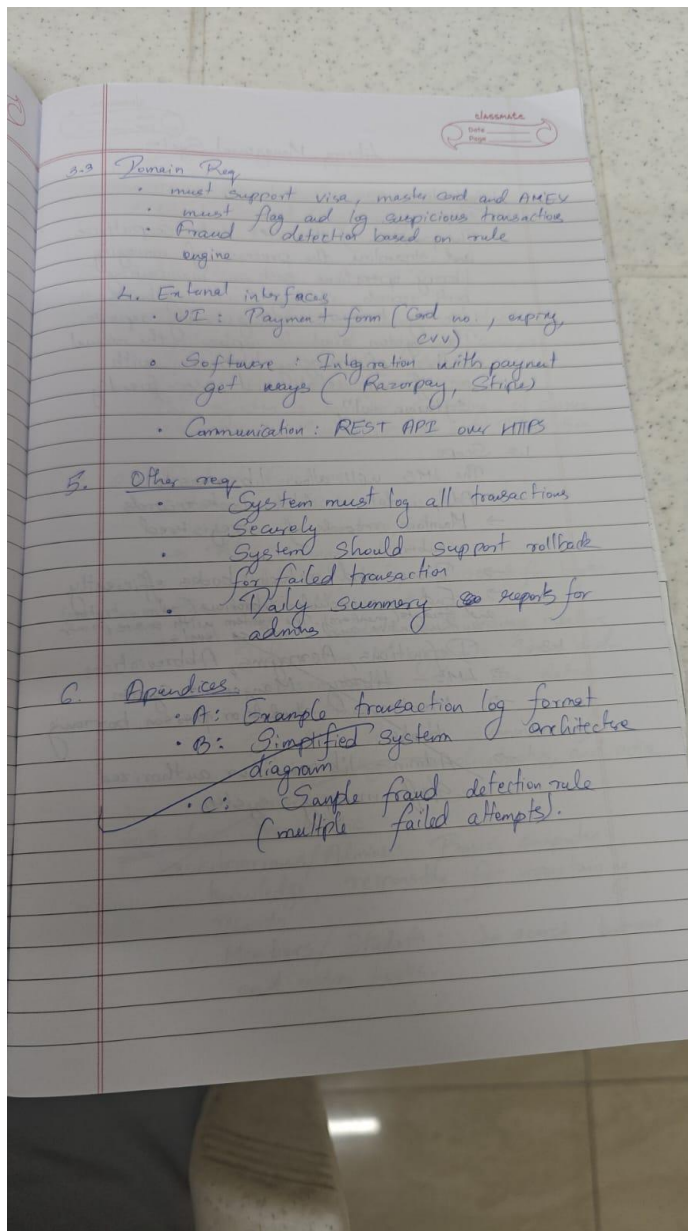 classmate
Date
Page
3.3 Domain Req
• must support visa, master card and AMEX
• must flag and log suspicious transaction
• Fraud detection based on rule
engine
4. External interfaces
• UI: Payment form (Card no., expiry,
CVV)
• Software: Integration with payment
get ways (Razorpay, Stripe)
• Communication: REST API over HTTPS
5. Other req
• System must log all transactions
Securely
• System should support rollback
for failed transaction
• Daily summery reports for
admins
6. Apendices
• A: Example transaction log format
• B: Simplified system architecture
diagram
• C: Sample fraud detection rule
(multiple failed attempts).